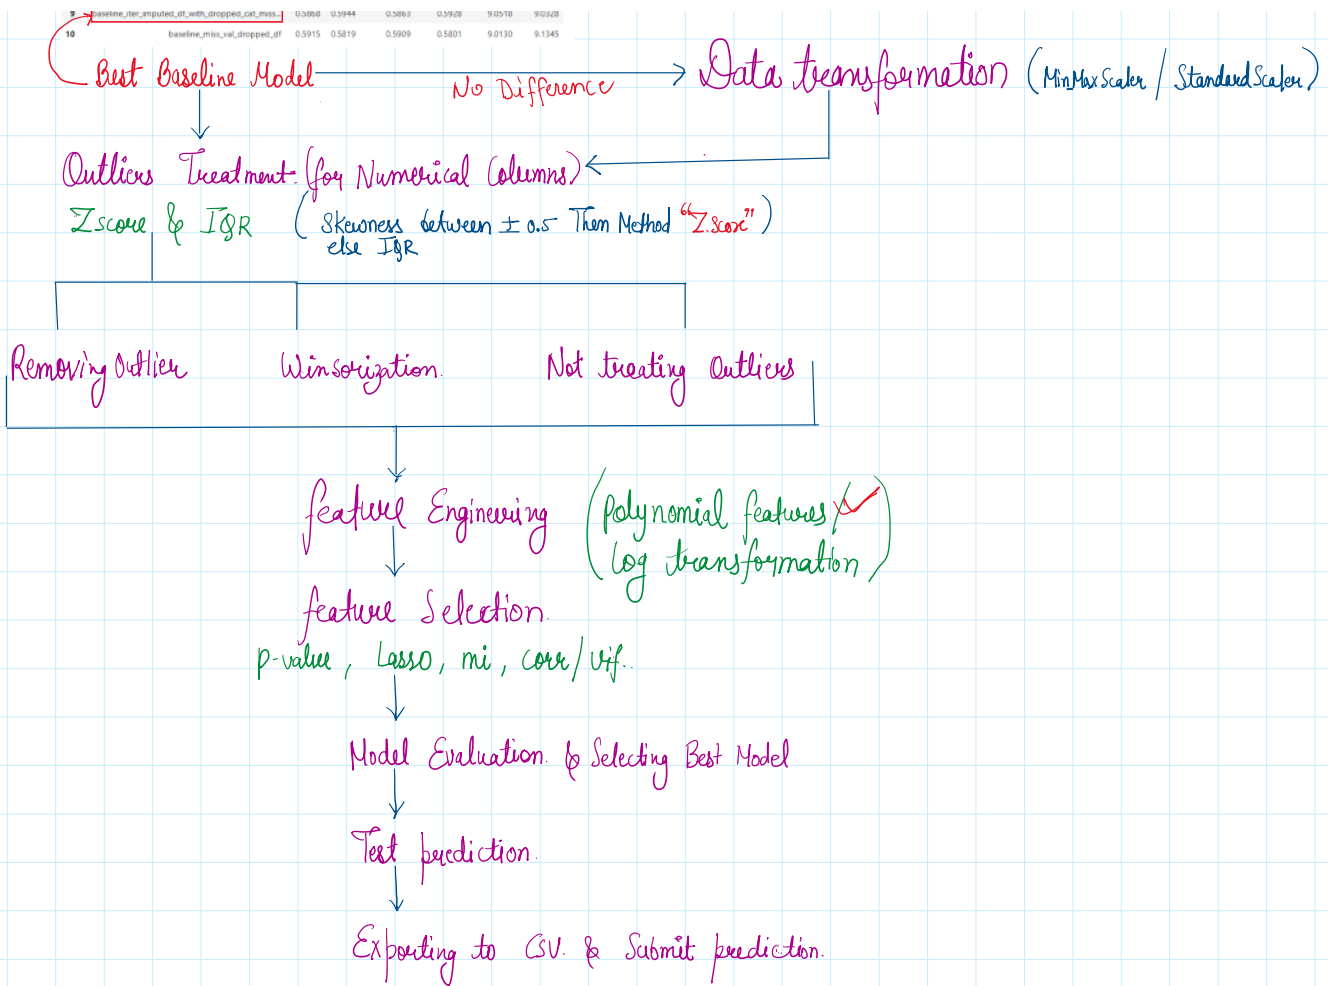 9 baseline_iter_imputed_df_with_dropped_cat_miss... 0.5868 0.5944 0.5863 0.5928 9.0518 9.0328
10 baseline_miss_val_dropped_df 0.5915 0.5819 0.5909 0.5801 9.0130 9.1345
Best Baseline Model No Difference Data transformation (MinMaxScaler / StandardScaler)
Outliers Treatment (for Numerical Columns)
Zscore & IQR (Skewness between ± 0.5 Then Method "Z.Score")
else IQR
Removing Outlier Winsorization. Not treating Outliers
feature Engineering (Polynomial features /
log transformation)
feature Selection.
p-value, Lasso, mi, corr/vif..
Model Evaluation. & Selecting Best Model
Test prediction.
Exporting to CSV. & Submit prediction.